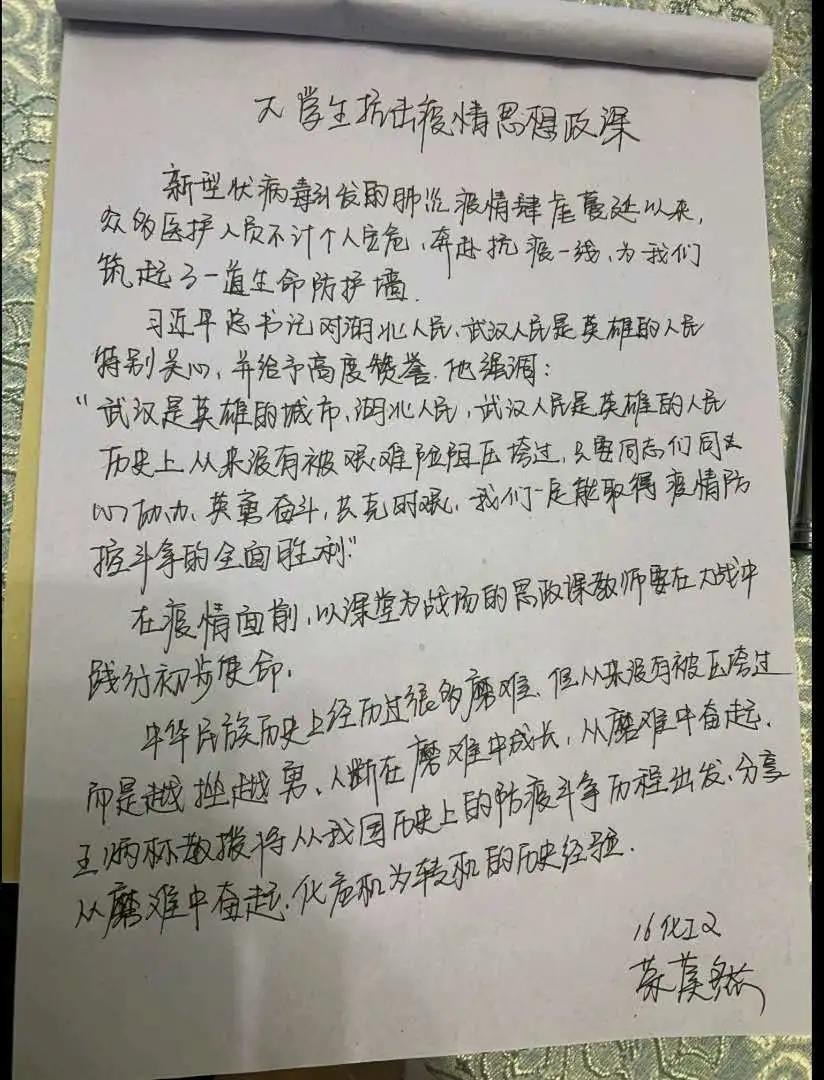 大学生抗击疫情思想政课
新型状病毒引发的肺炎疫情肆虐蔓延以来,
众多医护人员不计个人安危、奔赴抗疫一线,为我们
筑起了一道生命防护墙.
习近平总书记对湖北人民、武汉人民是英雄的人民
特别关心,并给予高度赞誉.他强调:
“武汉是英雄的城市、湖北人民,武汉人民是英雄的人民
历史上从来没有被艰难险阻压垮过,只要同志们同
心协力、英勇奋斗,共克时艰,我们一定能取得疫情防
控斗争的全面胜利”
在疫情面前,以课堂为战场的思政课教师要在大战中
践行初步使命.
中华民族历史上经历过很多磨难、但从来没有被压垮过
而是越挫越勇、断在磨难中成长、从磨难中奋起.
王炳林教授将从我国历史上的防疫斗争历程出发、分享
从磨难中奋起.化危机为转机的历史经验.
16化工2